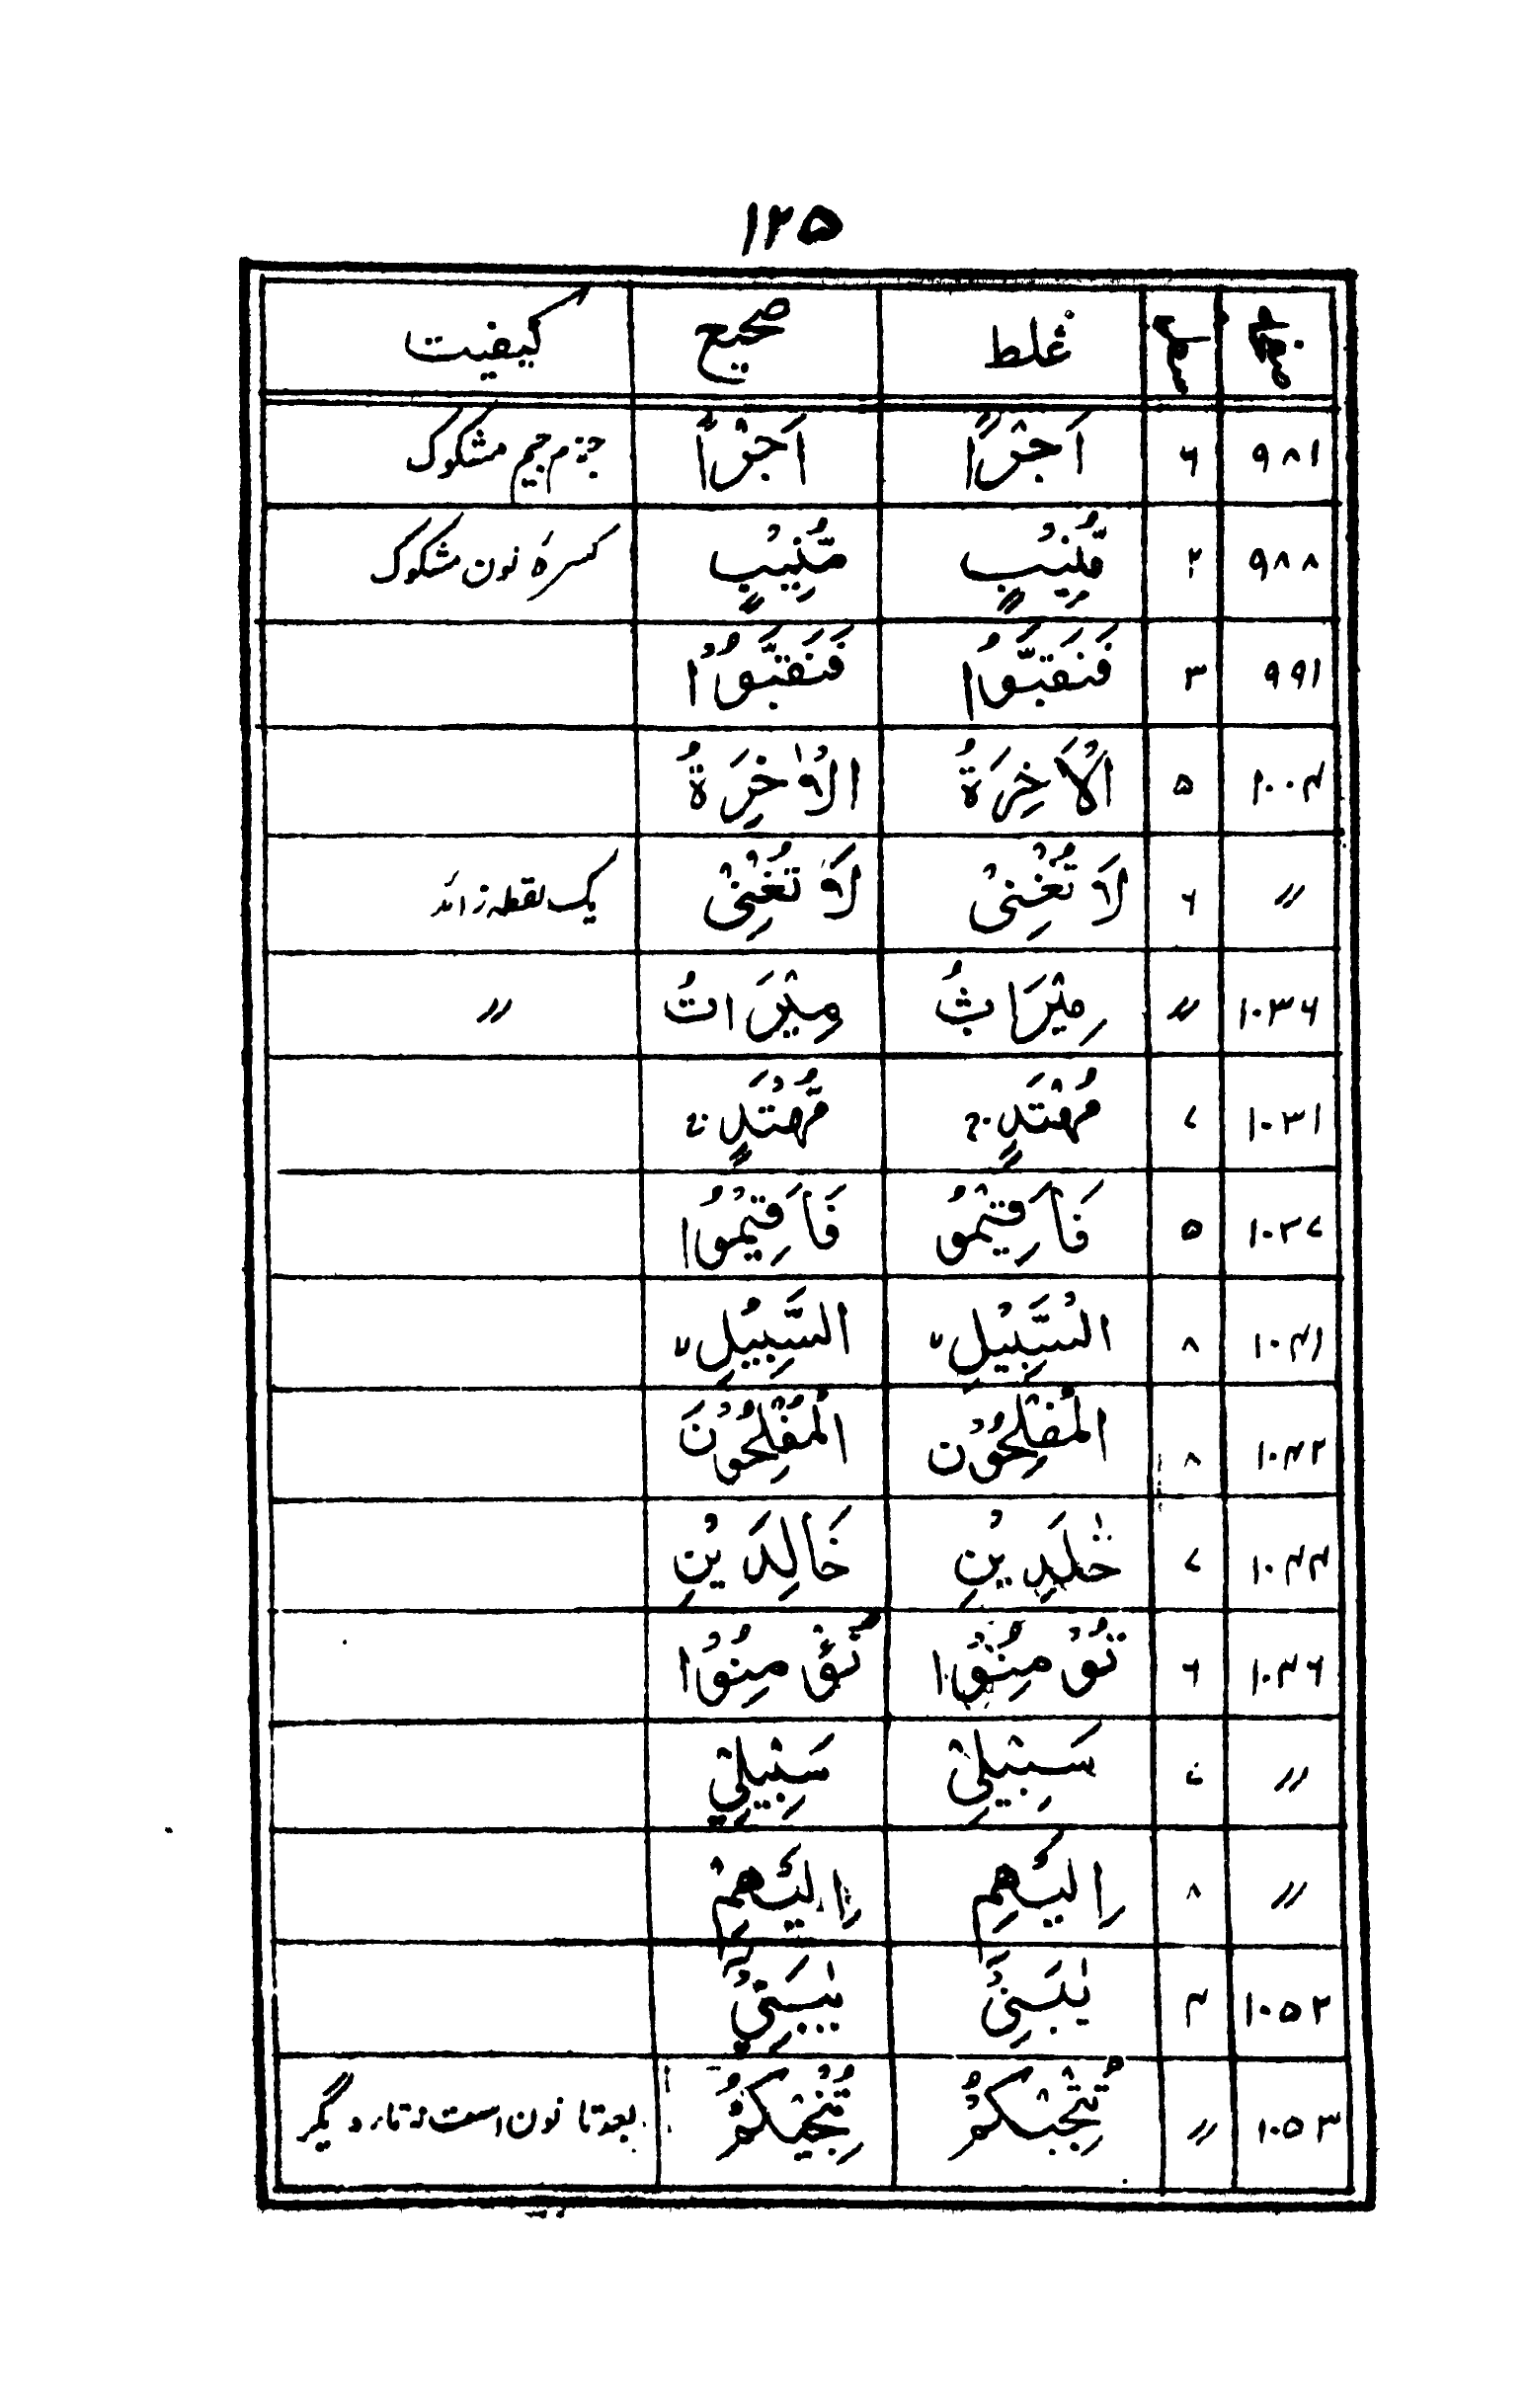 ۱۲۵
صفحہ سطر غلط صحیح کیفیت
۹۸۱ ۶ اَجْرًا اَجْرًا جزم جیم مشکوک
۹۸۸ ۲ مُّنِيْبٍ مُّنِيْبٍ کسرہ نون مشکوک
۹۹۱ ۳ فَنَقَّبُوا فَنَقَّبُوْا
۱۰۰۴ ۵ الْاَخِرَةُ الْاٰخِرَةُ
〃 ۶ لَا تُغْنِىْ لَا تُغْنِىْ یک نقطہ زائد
۱۰۳۶ 〃 مِيْرَاثُ مِيْرَاثُ 〃
۱۰۳۱ ۷ مُهْتَدٍ ج مُّهْتَدٍ ج
۱۰۳۷ ۵ فَاَقِيْمُو فَاَقِيْمُوا
۱۰۴۱ ۸ السَّبِيْلِ لا السَّبِيْلِ لا
۱۰۴۲ ۸ الْمُفْلِحُوْن الْمُفْلِحُوْنَ
۱۰۴۴ ۷ خٰلَدِيْنِ خَالِدَيْنِ
۱۰۴۶ ۶ تُوْمِنُوْا تُؤْمِنُوْا
〃 ۷ سَبِيْلِيْ سَبِيْلِيْ
〃 ۸ اِلَيْهِمْ اِلَيْهِمْ
۱۰۵۲ ۴ يٰبَنِىْٓ يٰبَنِيْٓ
۱۰۵۳ 〃 تُنْجِيْكُمْ تُنْجِيْكُمْ بعد تا نون است نہ تار دیگر